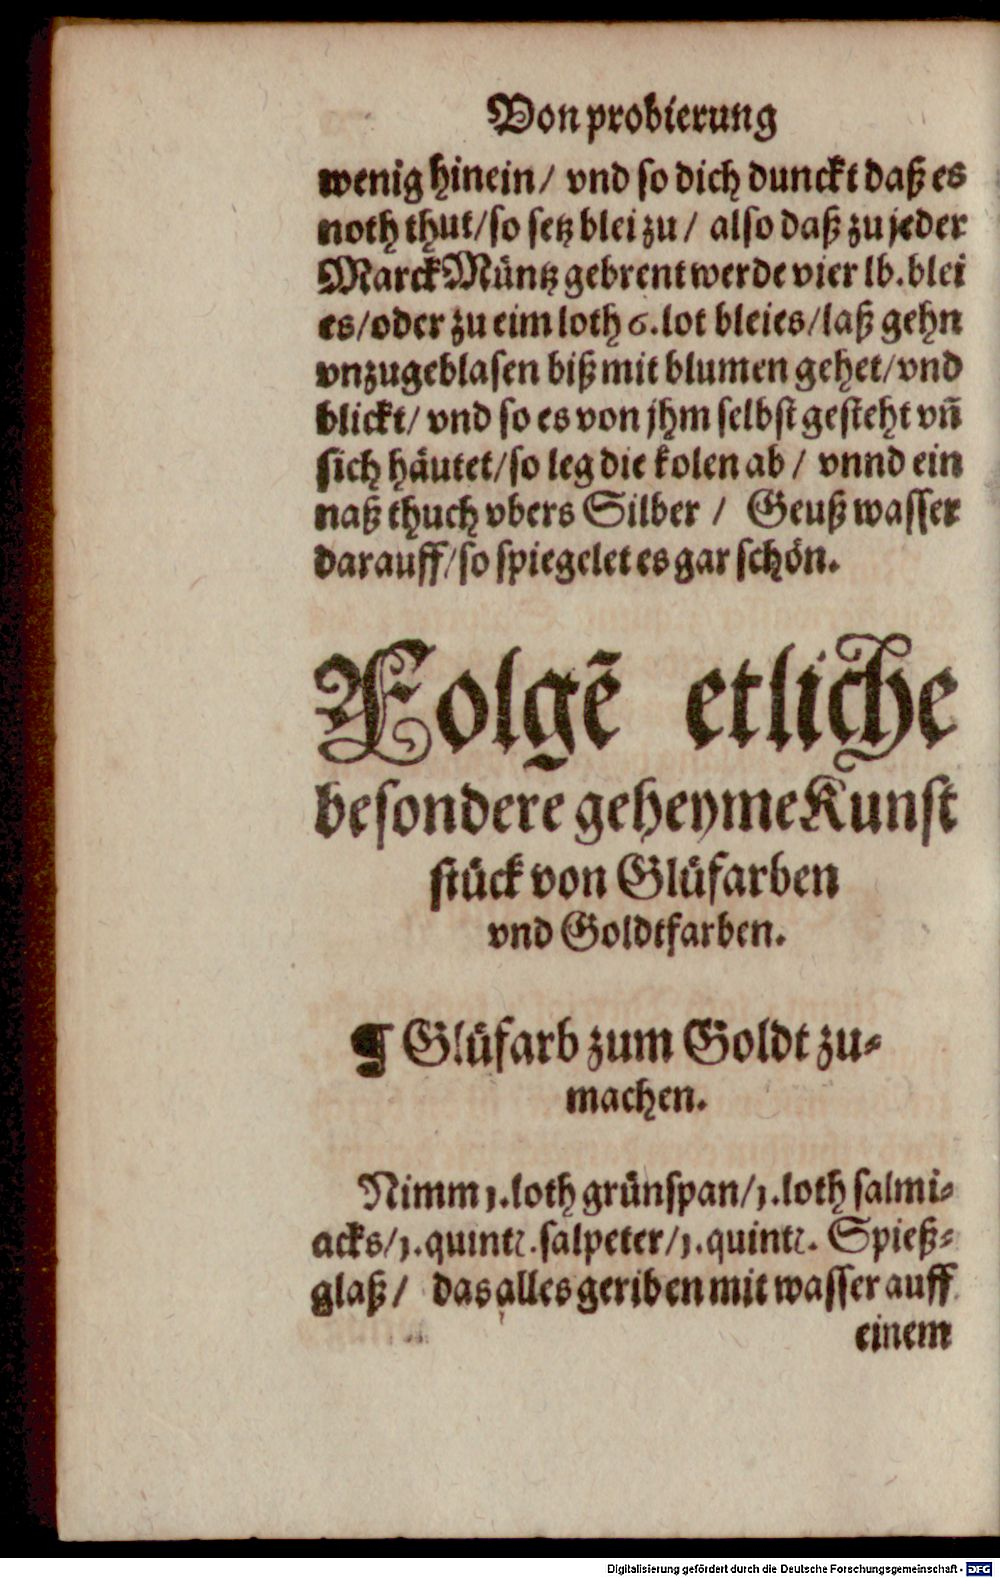 Von probierung
wenig hinein/ vnd so dich dunckt daß es
noth thut/so setz blei zu/ also daß zu jeder
Marck Müntz gebrent werde vier lb. blei
es/oder zu eim loth 6.lot bleies/laß gehn
vnzugeblasen biß mit blumen gehet/vnd
blickt/ vnd so es von jhm selbst gesteht vñ
sich häutet/so leg die kolen ab / vnnd ein
naß thuch vbers Silber / Geuß wasser
darauff/so spiegelet es gar schön.
Folgẽ etliche
besondere geheyme Kunst
stück von Glüfarben
vnd Goldtfarben.
¶ Glüfarb zum Goldt zu⸗
machen.
Nimm 1.loth grünspan/1.loth salmi⸗
acks/1.quintl.salpeter/1.quintl. Spieß⸗
glaß/ das alles geriben mit wasser auff
einem
Digitalisierung gefördert durch die Deutsche Forschungsgemeinschaft - DFG